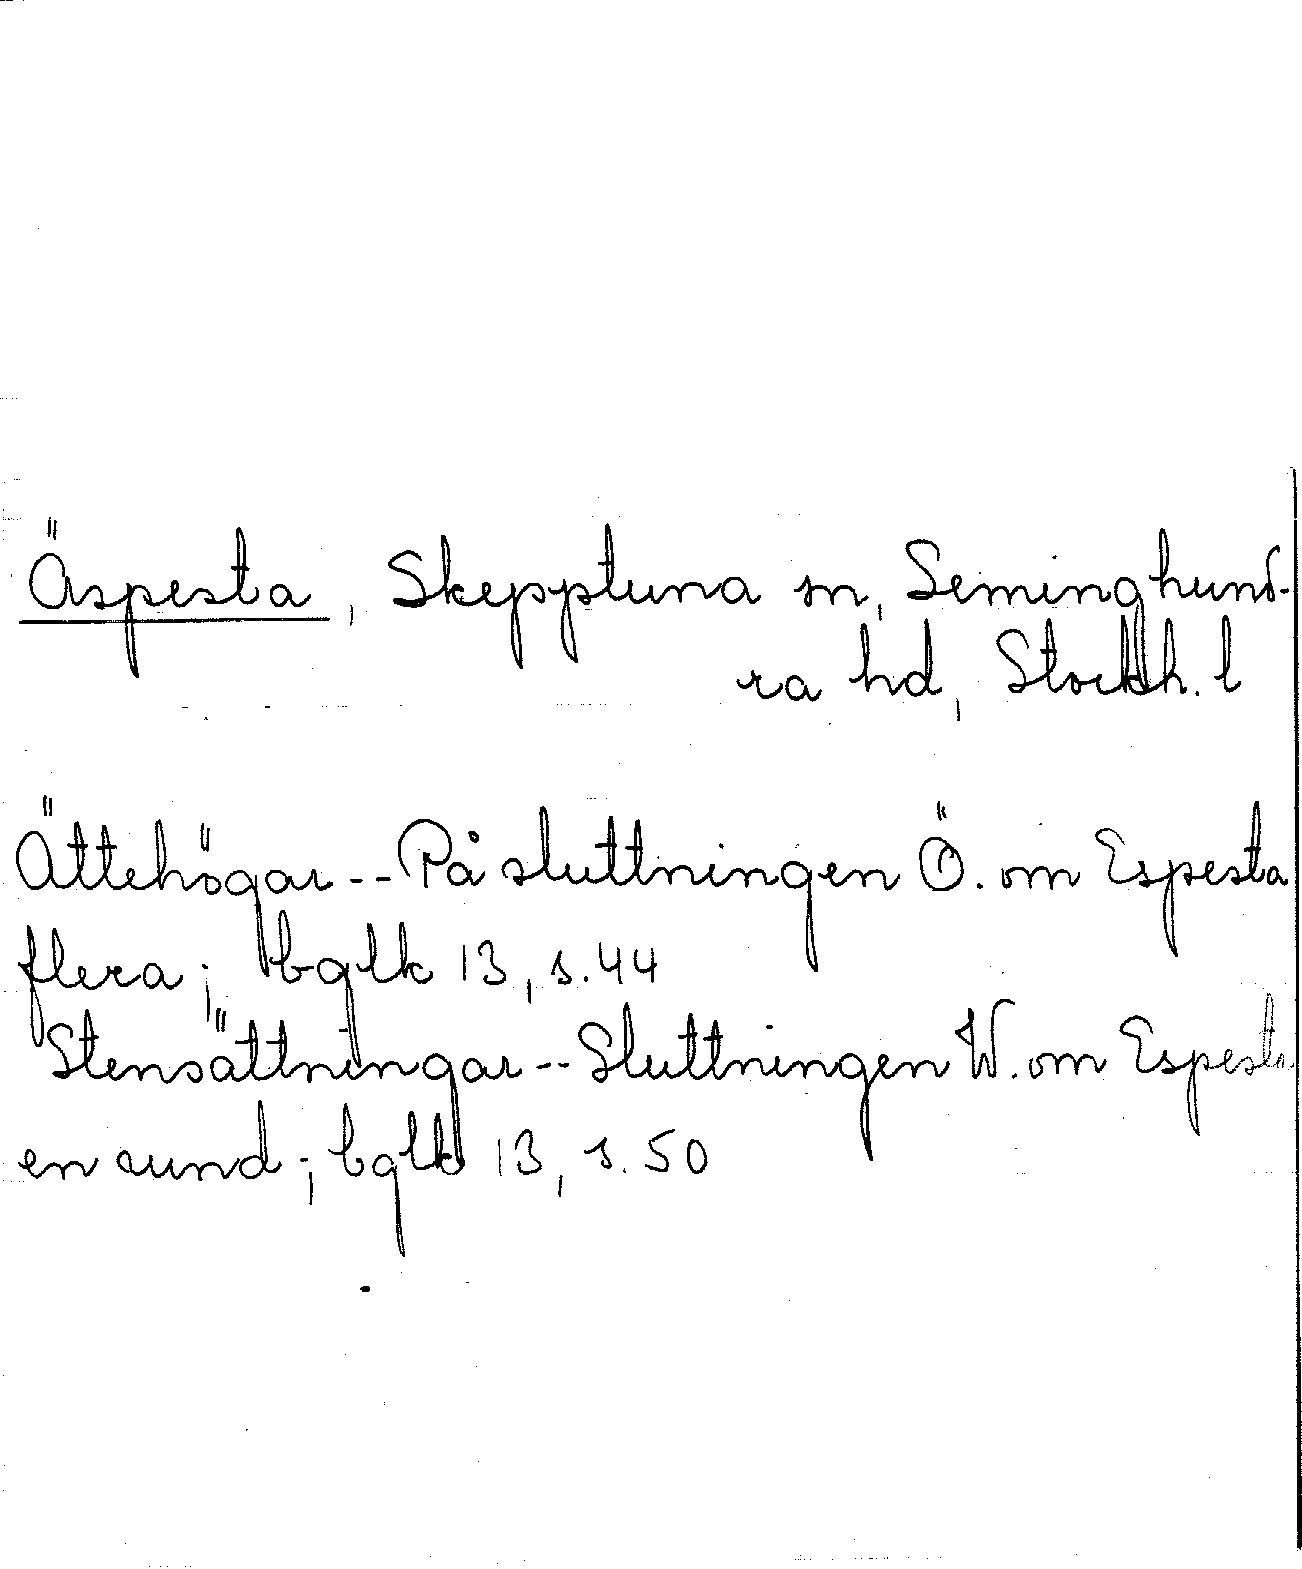 Äspesta, Skepptuna sn, Seminghund-
ra hd, Stockh. l
Ättehögar -- På sluttningen Ö. om Espesta
flera; bglk 13, s. 44
Stensättningar -- Sluttningen W. om Espesta
en rund; bglk 13, s. 50